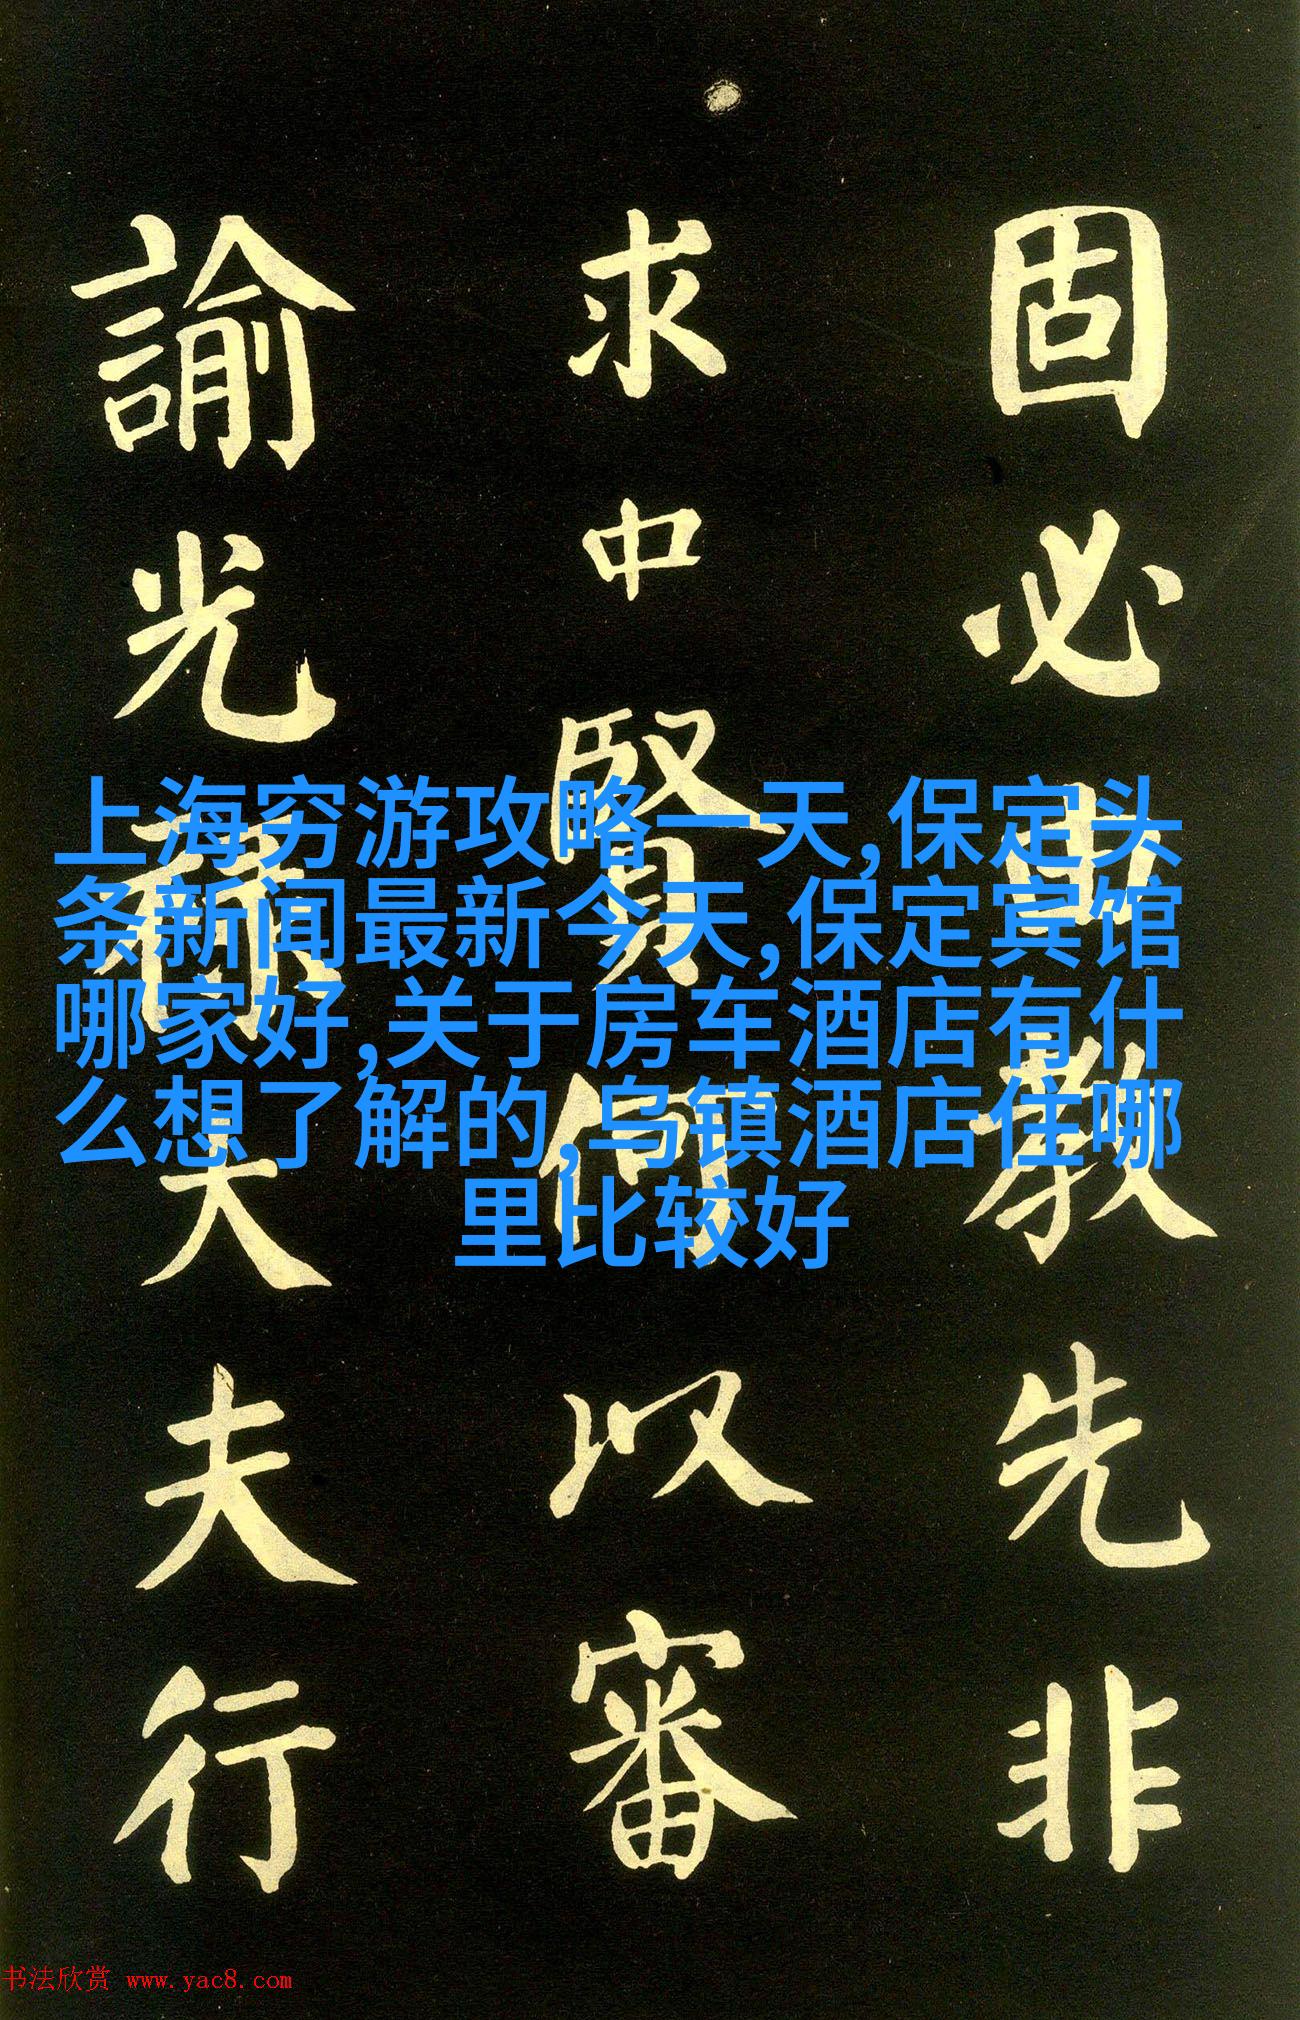 固必由教先非
求中賢何以審
諭光祿大夫行
上海穷游攻略一天,保定头
条新闻最新今天,保定宾馆
哪家好,关于房车酒店有什
么想了解的,乌镇酒店住哪
里比较好
书法欣赏 www.yac8.com